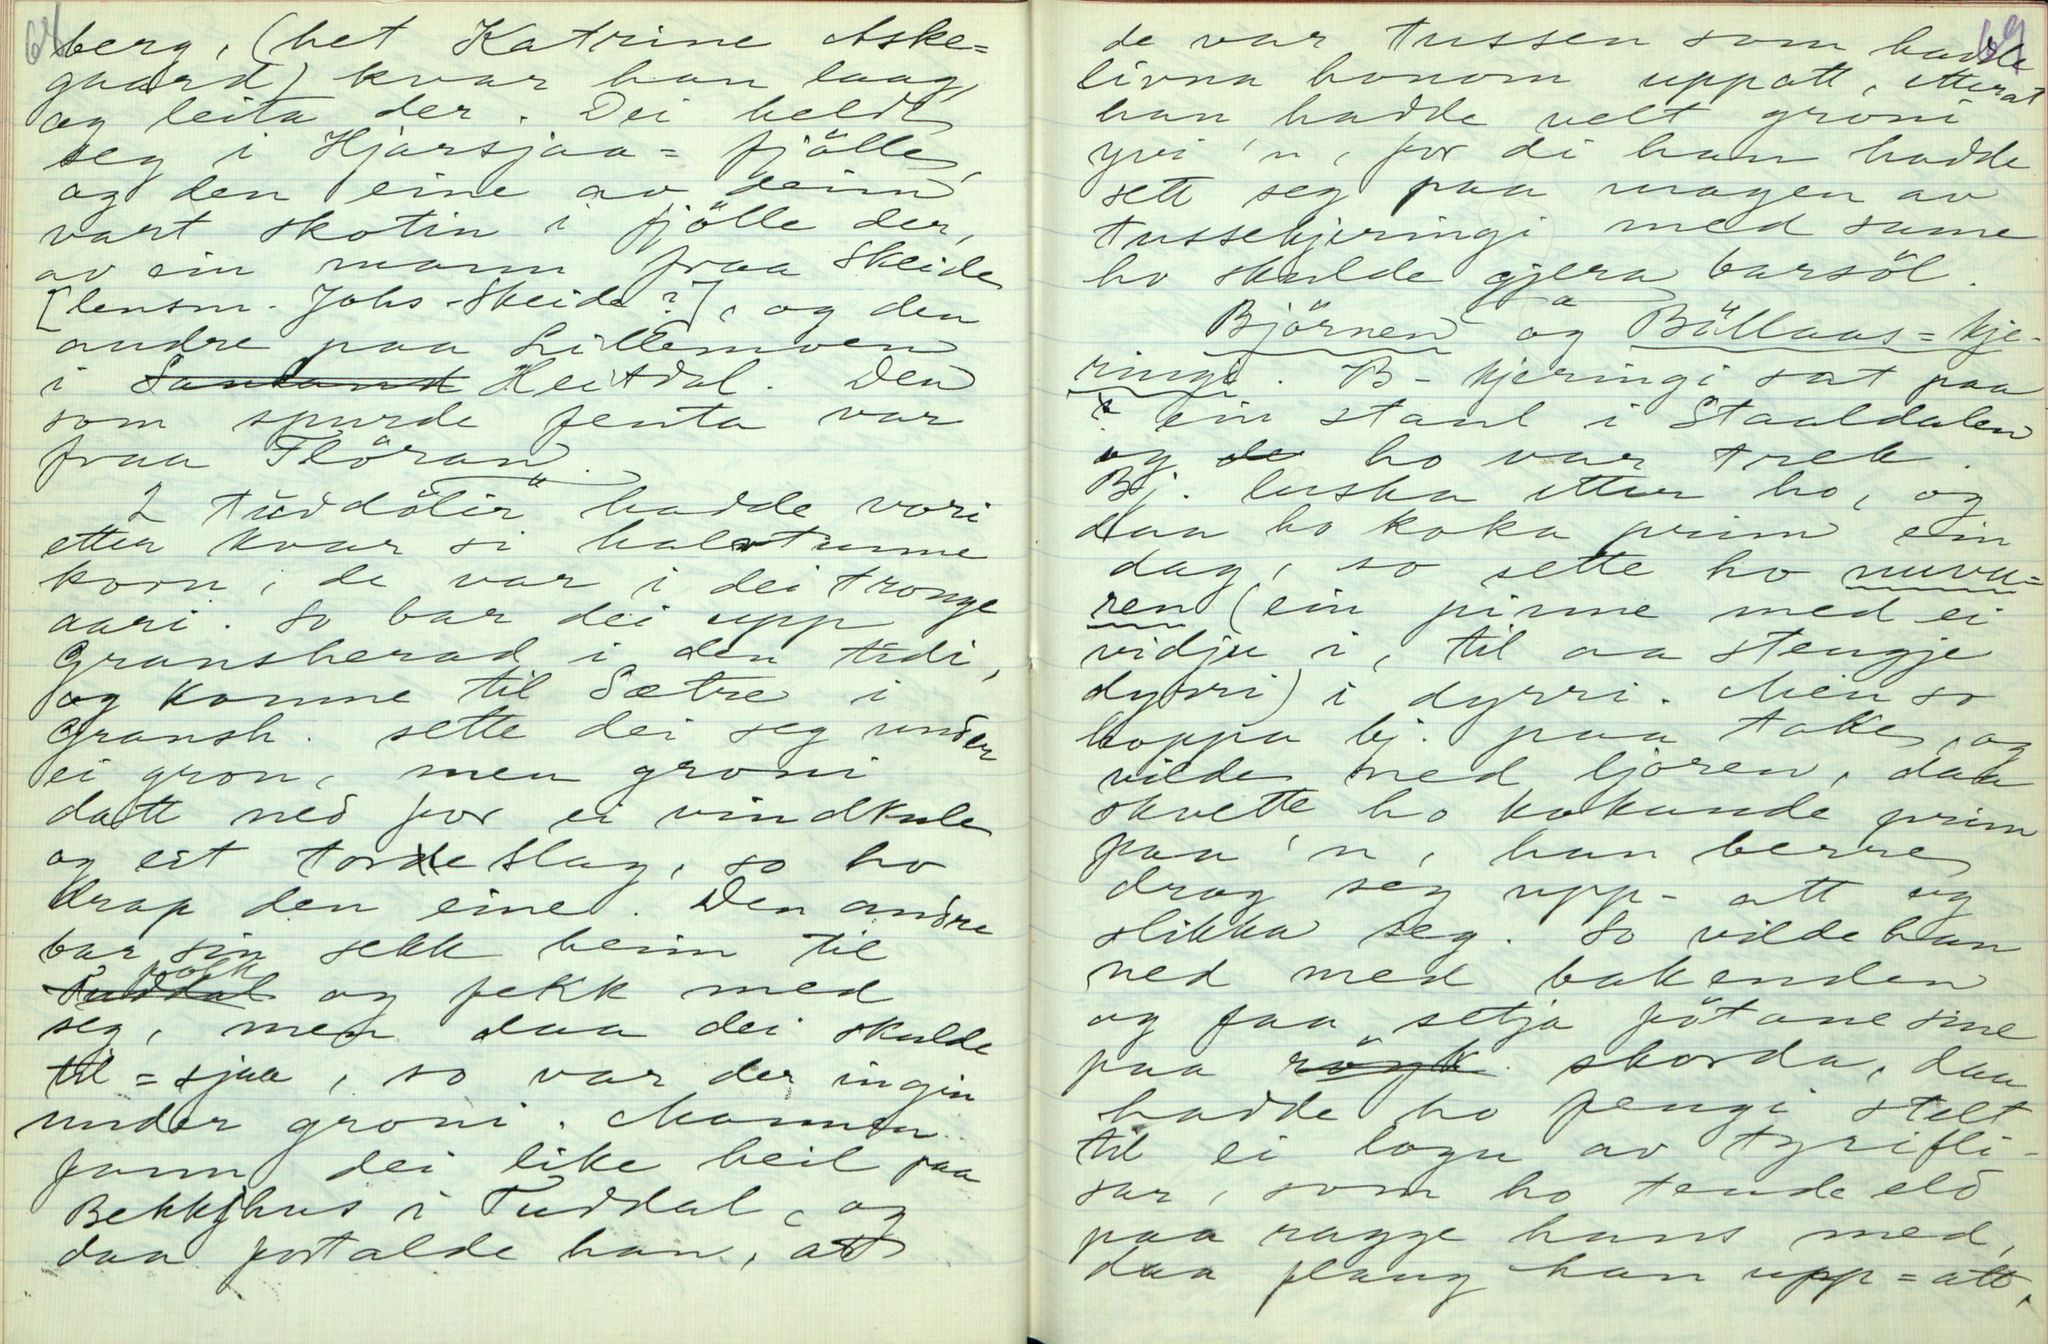 68
berg, (het Katrine Aske=
gaard) kvar han laag,
og leita der. Dei heldt
seg i Hjarsjaa=fjölle,
og den eine av deim
vart skotin i fjölle der,
av ein mann fraa Skeide
[lensm. Johs. Skeide?], og den
andre paa Lillemoen
i Sauland Heitdal. Den
som spurde jenta var
fraa Flöran.
2 tuddölir hadde vori
etter kvar si halvtunne
korn, de var i dei tronge
aari. So bar dei upp
Gransherad i den tidi,
og komme til Sætre i
Gransh. sette dei seg under
ei gron, men groni
datt ned for ei vindkule
og eit tordeslag, so ho
drap den eine. Den andre
bar sin sekk heim til
folk
Tuddal og fekk med
seg, men daa dei skulde
til=sjaa, so var der ingin
under groni. Mannen
fann dei like heil paa
Bekkhus i Tuddal, og
daa fortalde han, at
69
de var tussen som hadde
livna honom uppatt, etterat
han hadde velt groni
yvi 'n, for di han hadde
sett seg paa magen av
tussekjeringi med same
ho skulde gjera barsöl.
Björnen og Böllaas=kje-
ringi. B-kjeringi sat paa
ein staul i Staaldalen
og de ho var trek.
Bj. luska etter ho, og
daa ho koka prim ein
dag, so sette ho nuvu=
ren (ein pinne med ei
vidju i, til aa stengje
dyrri) i dyrri. Men so
hoppa bj. paa take, og
vilde ned ljoren, daa
skvette ho kokande prim
paa 'n, han berre
drog seg upp-att og
slikka seg. So vilde han
ned med bakenden
og faa setja fötane sine
paa skorda, daa
hadde ho fengi stelt
til ei logu av tyrifli-
sar, som ho tende eld
paa ragge hans med,
daa flaug han upp=att,